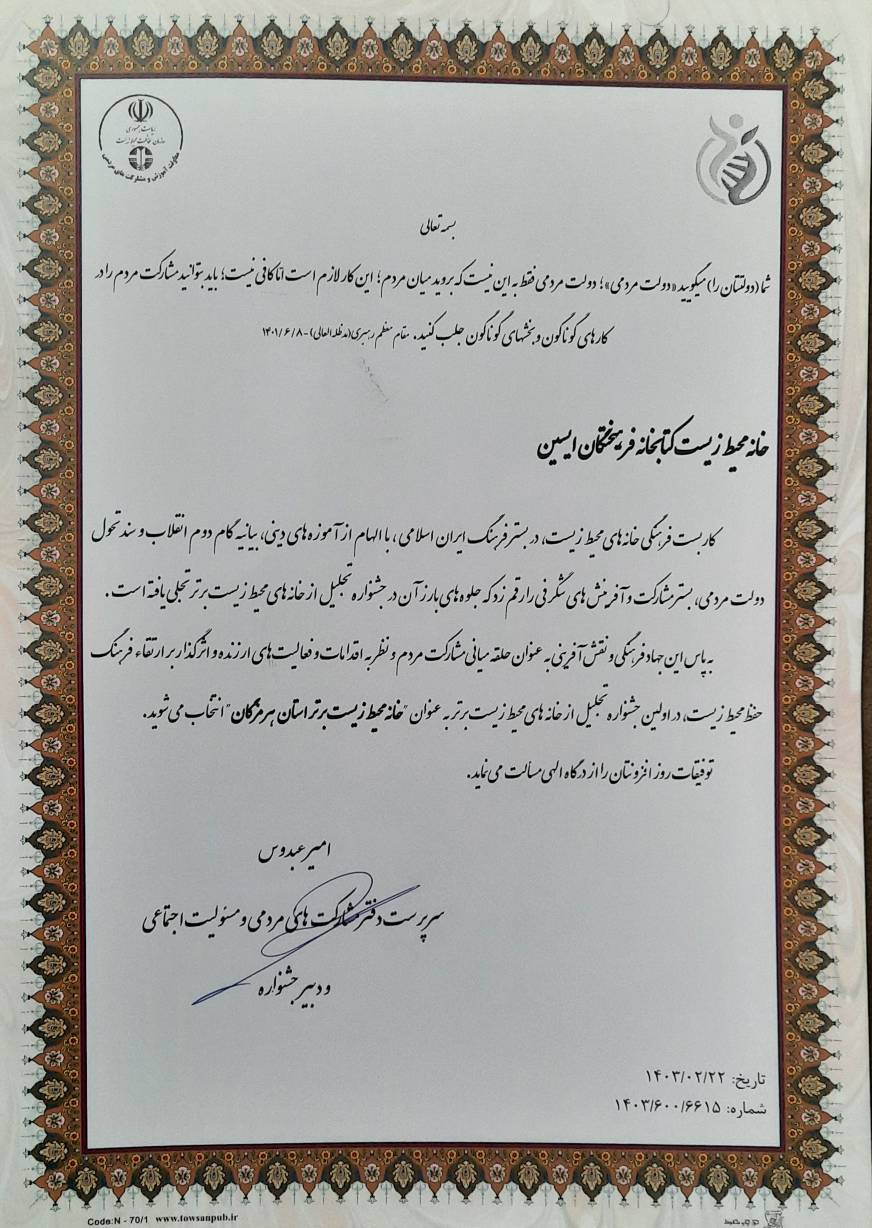 ریاست جمهوری
سازمان حفاظت محیط زیست
معاونت آموزش و مشارکت های مردمی
بسمه تعالی
شما (دولتتان را) میگویید «دولت مردمی»؛ دولت مردمی فقط به این نیست که بروید میان مردم؛ این کار لازم است اما کافی نیست؛ باید بتوانید مشارکت مردم را در
کارهای گوناگون و بخشهای گوناگون جلب کنید. مقام معظم رهبری(مدظله العالی)-۱۴۰۱/۶/۸
خانه محیط زیست کتابخانه فرهیختگان ایسین
کاربست فرهنگی خانه های محیط زیست، در بستر فرهنگ ایران اسلامی، با الهام از آموزه های دینی، بیانیه گام دوم انقلاب و سند تحول
دولت مردمی، بستر مشارکت و آفرینش های شگرفی را رقم زد که جلوه های بارز آن در جشنواره تجلیل از خانه های محیط زیست برتر تجلی یافته است.
به پاس این جهاد فرهنگی و نقش آفرینی به عنوان حلقه میانی مشارکت مردم و نظر به اقدامات و فعالیت های ارزنده و اثرگذار بر ارتقاء فرهنگ
حفظ محیط زیست، در اولین جشنواره تجلیل از خانه های محیط زیست برتر به عنوان "خانه محیط زیست برتر استان هرمزگان" انتخاب می شوید.
توفیقات روز افزونتان را از درگاه الهی مسألت می نماید.
امیر عبدوس
سرپرست دفتر مشارکت های مردمی و مسئولیت اجتماعی
و دبیر جشنواره
تاریخ: ۱۴۰۳/۰۲/۲۲
شماره: ۱۴۰۳/۶۰۰/۶۶۱۵
Code:N - 70/1 www.towsanpub.ir